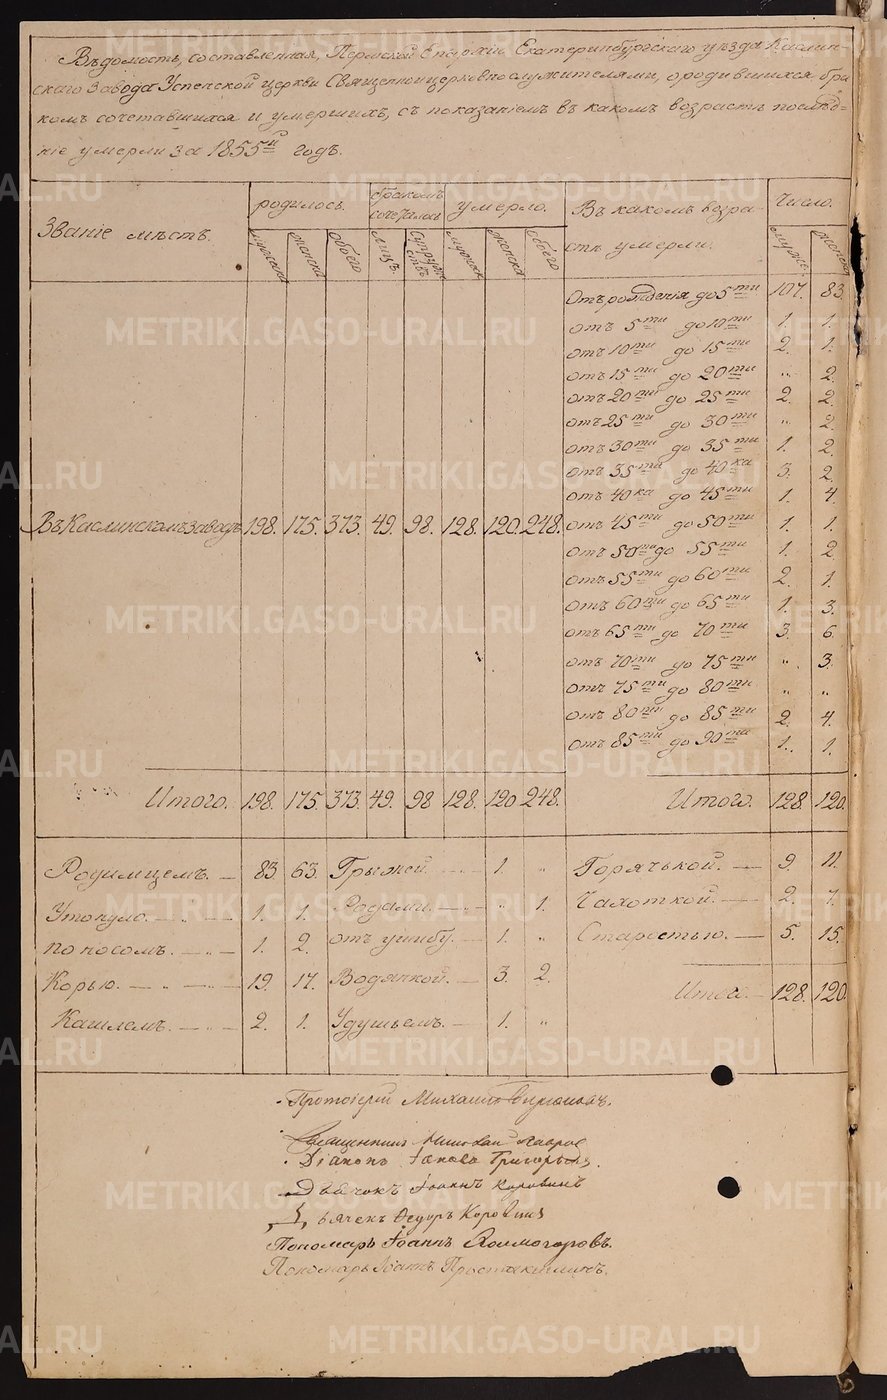 Вѣдомость, составленная, Пермской Епархіи Екатеринбургскаго уѣзда Каслин-
скаго Завода Успенской церкви Священноцерковнослужителями, ородившихся бра-
комъ сочетавшихся и умершихъ, съ показаніемъ въ какомъ возрастѣ послѣд-
ніе умерли за 1855й годъ.
Званіе мѣстъ. родилось. бракомъ сочеталось умерло. Въ какомъ возра- Число.
стѣ умерли.
мужеска женска обоего лицъ супружествъ мужеска женска обоего мужес. женска
Отъ рожденія до 5ти 107. 83.
отъ 5ти до 10ти 1. 1.
отъ 10ти до 15ти 2. 1.
отъ 15ти до 20ти " 2.
отъ 20ти до 25ти 2. 2.
отъ 25ти до 30ти " 2.
отъ 30ти до 35ти 1. 2.
отъ 35ти до 40ка 3. 2.
отъ 40ка до 45ти 1. 4.
Въ Каслинскомъ заводѣ 198. 175. 373. 49. 98. 128. 120. 248. отъ 45ти до 50ти 1. 1.
отъ 50ти до 55ти 1. 2.
отъ 55ти до 60ти 2. 1.
отъ 60ти до 65ти 1. 3.
отъ 65ти до 70ти 3. 6.
отъ 70ти до 75ти " 3.
отъ 75ти до 80ти " "
отъ 80ти до 85ти 2. 4.
отъ 85ти до 90та 1. 1.
Итого. 198. 175. 373. 49. 98 128. 120 248. Итого. 128. 120.
Родимцемъ. — 83. 63. Грыжей. — 1. " Горячькой. — 9. 11.
Утонуло. — " — 1. 1. Родами. — " 1. Чахоткой. — 2. 7.
поносомъ. — " — 1. 2. отъ ушибу. — 1. " Старостью. — 5. 15.
Корью. — " — 19. 17. Водячкой. — 3. 2. Итого — 128. 120.
Кашлемъ. — " — 2. 1. Удушьемъ. — 1. "
Протоіерей Михаилъ
Священникъ Николай
Діаконъ Іаковъ Григорьевъ.
Дьячокъ Іоаннъ Коровинъ
Дьячекъ Ѳедоръ Коровинъ
Пономарь Іоаннъ Холмогоровъ.
Пономарь Іоаннъ
METRIKI.GASO-URAL.RU